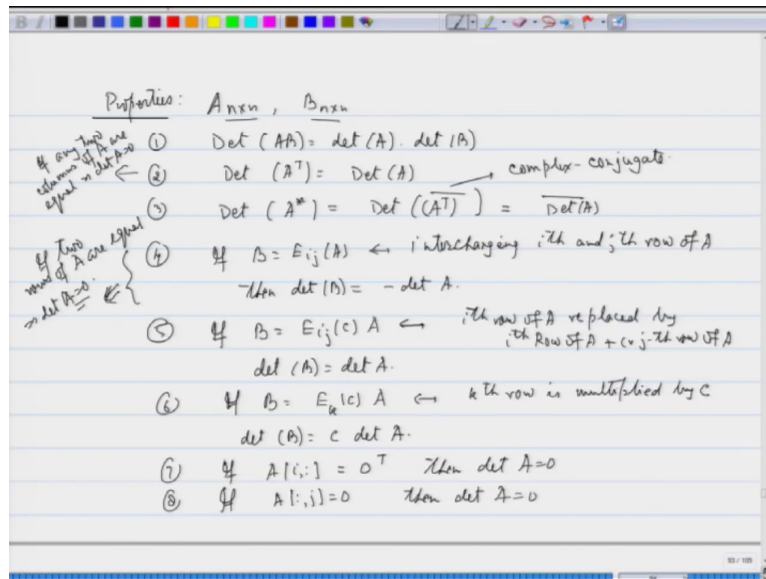 Properties: A n×n , B n×n
If any two columns of A are equal ⇒ det A=0
① Det (AB) = det(A). det(B)
② Det (A^T) = Det(A)
complex-conjugate.
③ Det (A*) = Det ((\overline{A^T})) = \overline{Det(A)}
If two rows of A are equal ⇒ det A=0.
④ If B = E_ij(A) ← interchanging ith and jth row of A
then det(B) = - det A.
⑤ If B = E_ij(c) A ← ith row of A replaced by
ith Row of A + c× j-th row of A
det (B) = det A.
⑥ If B = E_k(c) A ← kth row is multiplied by c
det (B) = c det A.
⑦ If A[i,:] = 0^T then det A=0
⑧ If A[:,j]=0 then det A=0
93 / 105